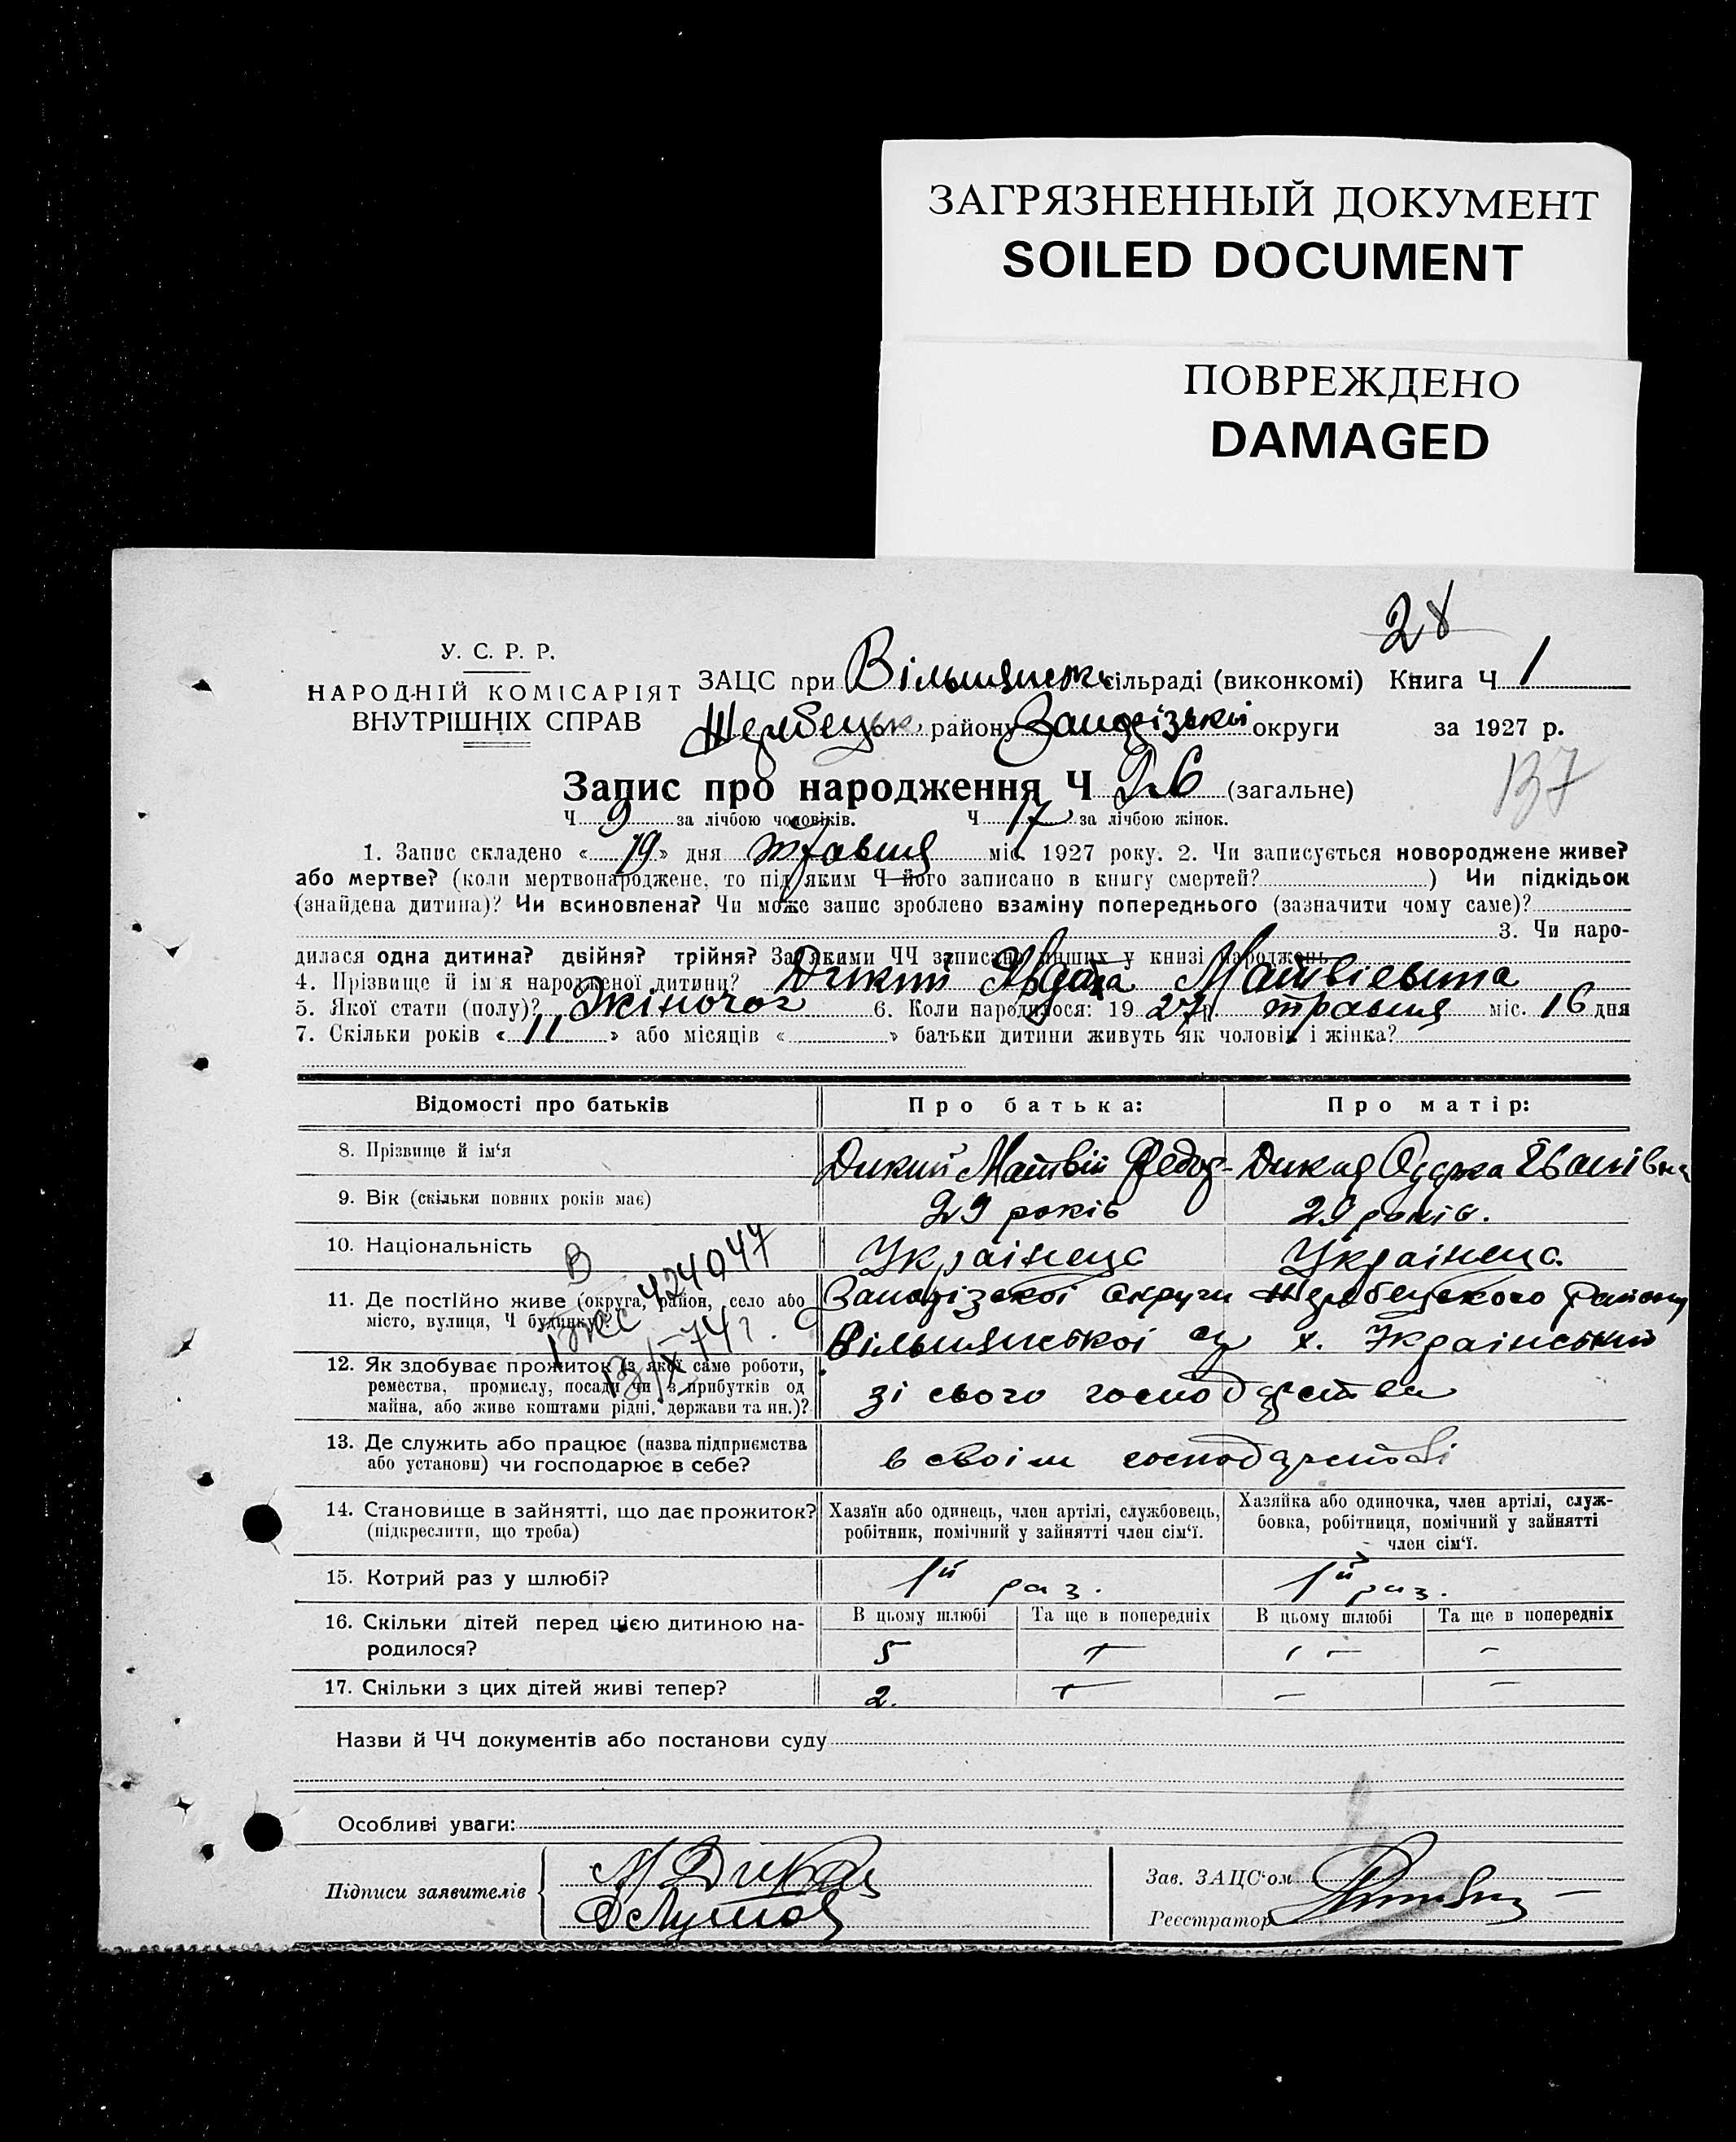 ЗАГРЯЗНЕННЫЙ ДОКУМЕНТ
SOILED DOCUMENT
ПОВРЕЖДЕНО
DAMAGED
28
У. С. Р. Р.
НАРОДНІЙ КОМІСАРІЯТ
ВНУТРІШНІХ СПРАВ
ЗАЦС при Вільшянськ сільраді (виконкомі) Книга Ч 1
Жеребецьк району Запорізької округи за 1927 р.
137
Запис про народження Ч 26 (загальне)
Ч 9 за лічбою чоловіків. Ч 17 за лічбою жінок.
1. Запис складено «19» дня травня міс. 1927 року. 2. Чи записується новороджене живе?
або мертве? (коли мертвонароджене, то під яким Ч його записано в книгу смертей? ) Чи підкідьок
(знайдена дитина)? Чи всиновлена? Чи може запис зроблено взаміну попереднього (зазначити чому саме)?
3. Чи наро-
дилася одна дитина? двійня? трійня? За якими ЧЧ записано инших у книзі народжень
4. Прізвище й ім'я народженої дитини? Дикий Матвіевина
5. Якої стати (полу)? Жіночог 6. Коли народилося: 1927 р. травня міс. 16 дня
7. Скільки років «11» або місяців « » батьки дитини живуть як чоловік і жінка?
Відомості про батьків
Про батька:
Про матір:
8. Прізвище й ім'я Дикий Матвій Федор- Дикая Одарка Іванівна
9. Вік (скільки повних років має) 29 років 29 років.
10. Національність Українець Українець
В 424047
11. Де постійно живе (округа, район, село або
місто, вулиця, Ч будинку)?
Запорізської округи Жеребецького району
Вільшянської с/р х. Український
74 г.
12. Як здобуває прожиток (з якої саме роботи,
ремества, промислу, посади чи з прибутків од
майна, або живе коштами рідні, держави та ин.)?
зі свого господарства
13. Де служить або працює (назва підприємства
або установи) чи господарює в себе?
в своім господарстві
14. Становище в зайнятті, що дає прожиток?
(підкреслити, що треба)
Хазяїн або одинець, член артілі, службовець,
робітник, помічний у зайнятті член сім'ї.
Хазяйка або одиночка, член артілі, служ-
бовка, робітниця, помічний у зайнятті
член сім'ї.
15. Котрий раз у шлюбі? 1й раз. 1й раз.
16. Скільки дітей перед цією дитиною на-
родилося?
В цьому шлюбі Та ще в попередніх В цьому шлюбі Та ще в попередніх
5 — — —
17. Скільки з цих дітей живі тепер? 2. — — —
Назви й ЧЧ документів або постанови суду
Особливі уваги:
Підписи заявителів
М Дикий
Зав. ЗАЦС'ом
Реєстратор